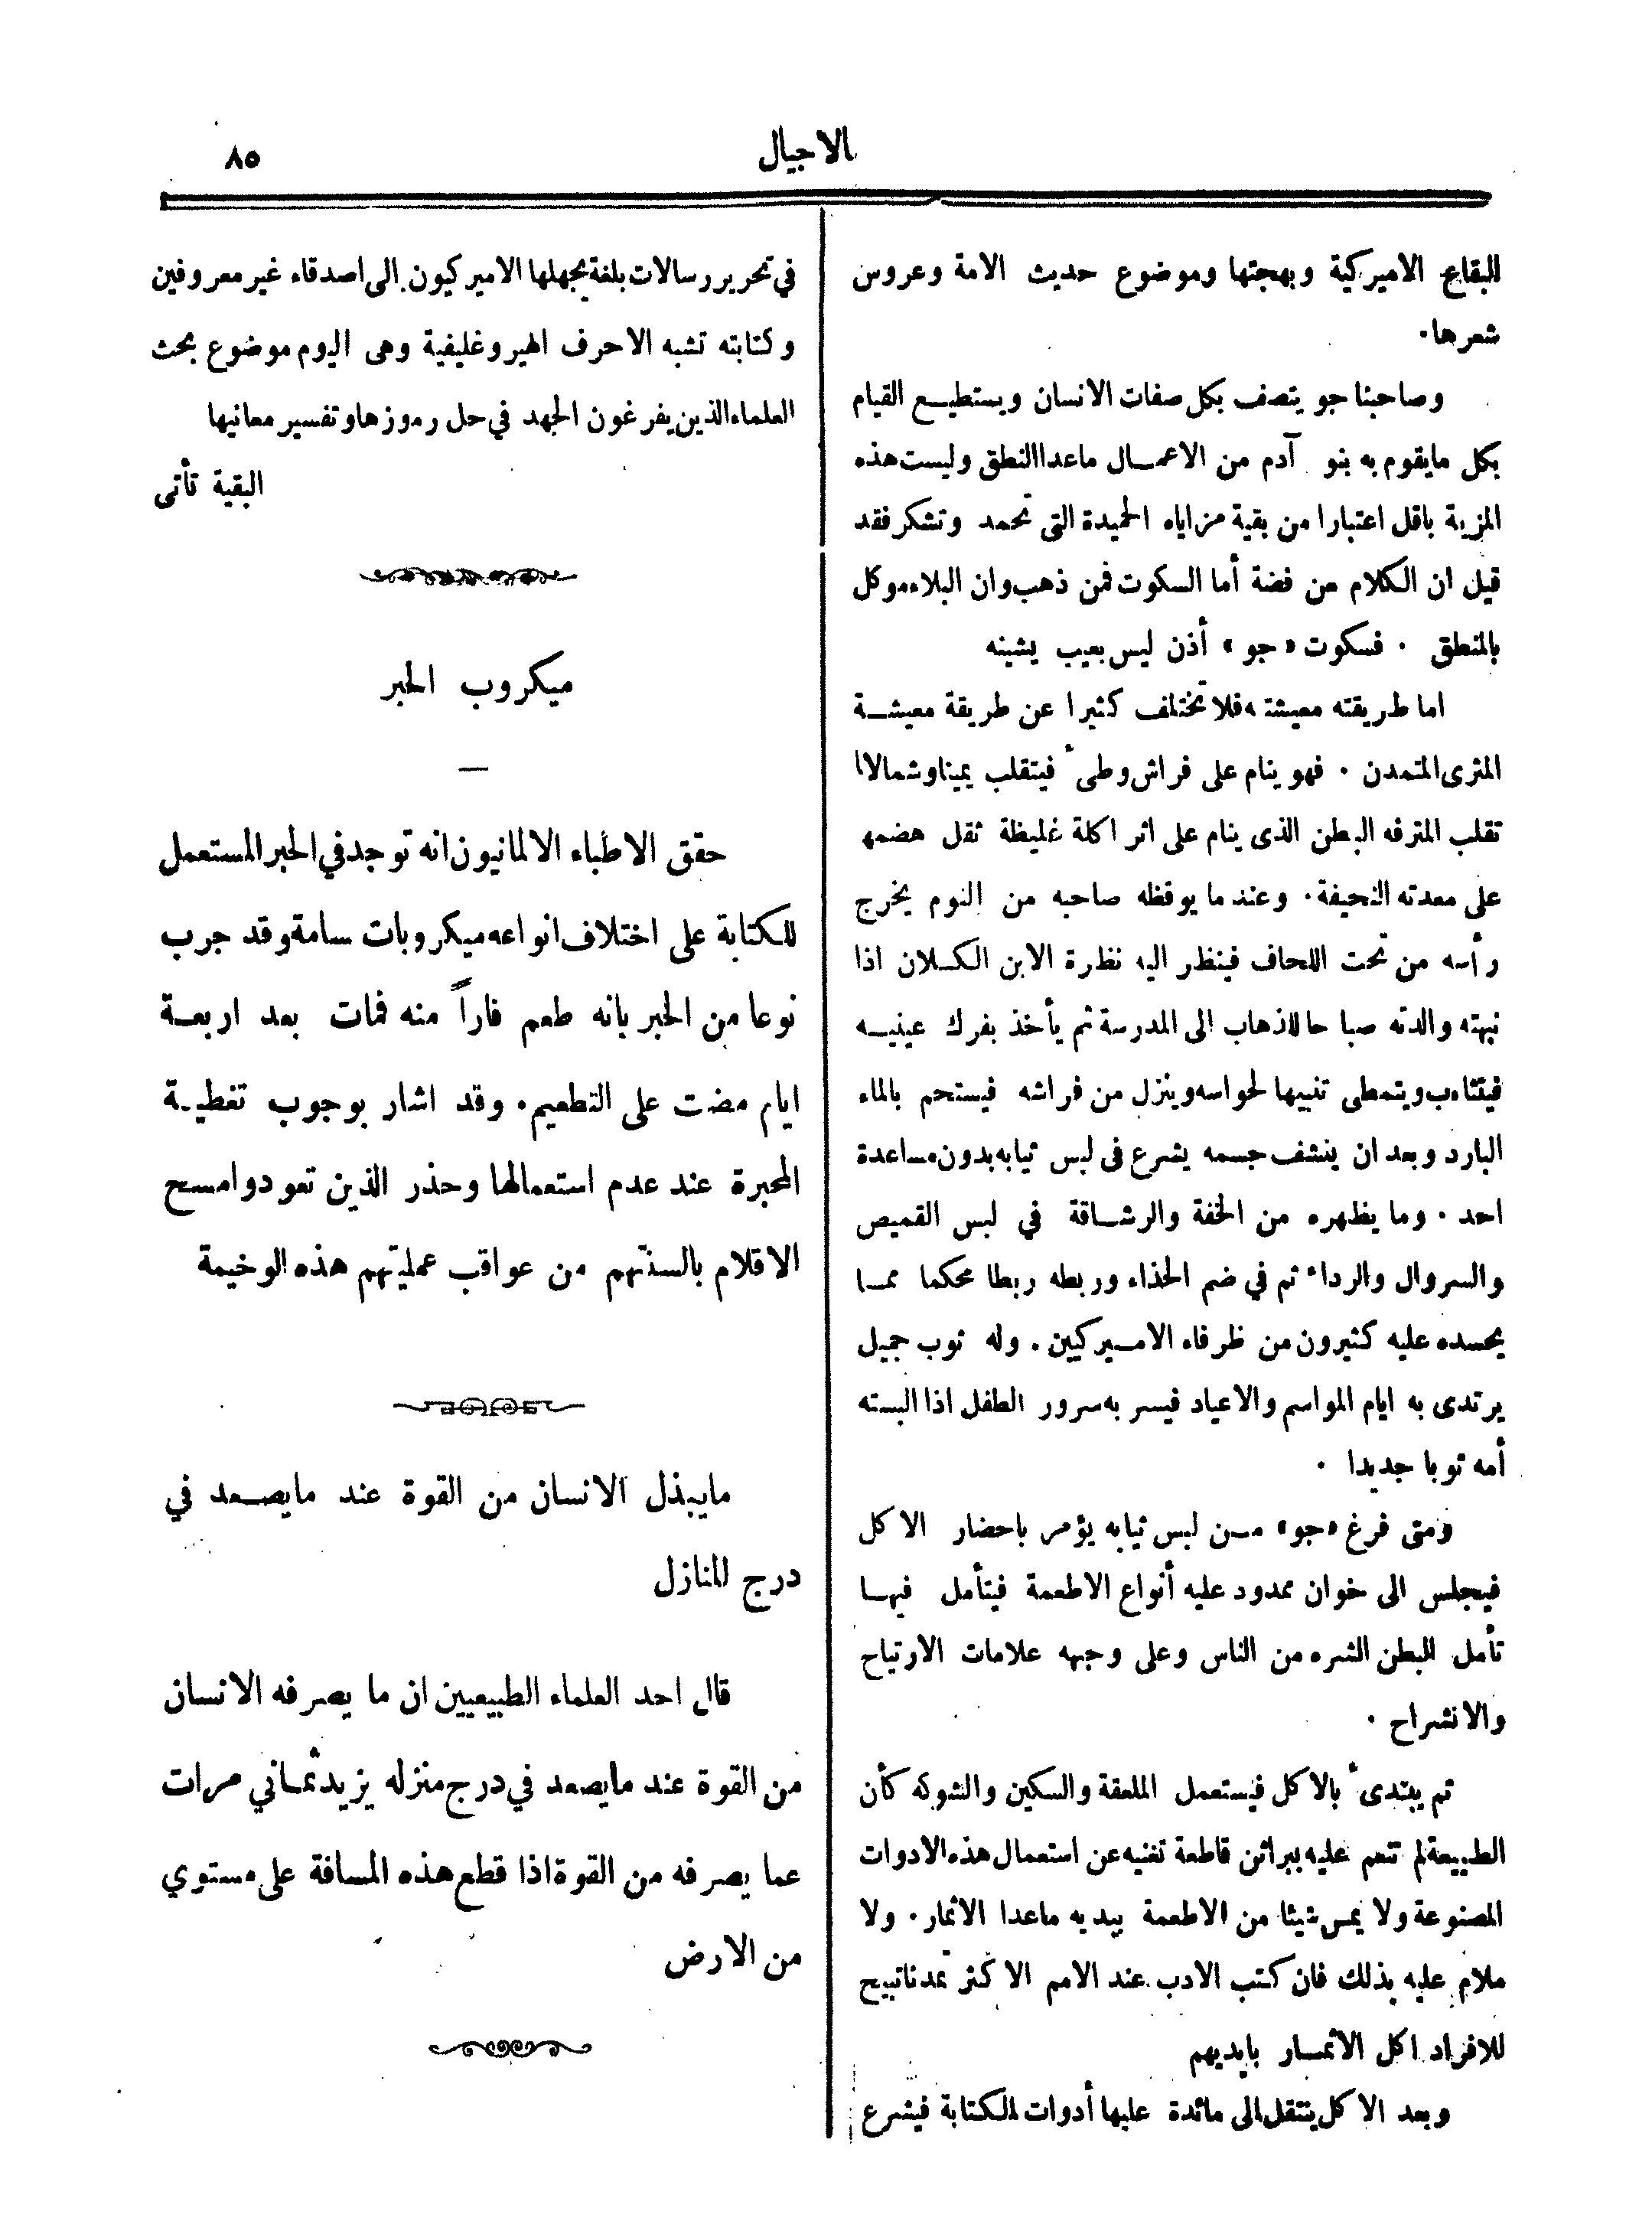 الاجيال
٨٥
البقاع الاميركية وبهجتها وموضوع حديث الامة وعروس
شعرها.
وصاحبنا جو يتصف بكل صفات الانسان ويستطيع القيام
بكل مايقوم به بنو آدم من الاعمال ماعدا النطق وليست هذه
المزية باقل اعتبارا من بقية مزاياه الحميدة التى تحمد وتشكر فقد
قيل ان الكلام من فضة أما السكوت فمن ذهب وان البلاء موكل
بالمنطق . فسكوت «جو» أذن ليس بعيب يشينه
اما طريقته معيشته فلا تختلف كثيرا عن طريقة معيشة
المثرى المتمدن . فهو ينام على فراش وطىء فيتقلب يمينا وشمالا
تقلب المترفه البطن الذى ينام على اثر اكلة غليظة ثقل هضمه
على معدته النحيفة. وعند ما يوقظه صاحبه من النوم يخرج
رأسه من تحت اللحاف فينظر اليه نظرة الابن الكسلان اذا
نبهته والدته صبا حا للذهاب الى المدرسة ثم يأخذ بفرك عينيه
فيتثاءب ويتمطى تنبيها لحواسه وينزل من فراشه فيستحم بالماء
البارد وبعد ان ينشف جسمه يشرع فى لبس ثيابه بدون مساعدة
احد . وما يظهره من الخفة والرشاقة في لبس القميص
والسروال والرداء ثم في ضم الحذاء وربطه ربطا محكما مما
يحسده عليه كثيرون من ظرفاء الاميركيين . وله ثوب جميل
يرتدى به ايام المواسم والاعياد فيسر به سرور الطفل اذا البسته
أمه ثوبا جديدا .
ومتى فرغ «جو» من لبس ثيابه يؤمر باحضار الاكل
فيجلس الى خوان ممدود عليه أنواع الاطعمة فيتأمل فيها
تأمل البطن الشره من الناس وعلى وجهه علامات الارتياح
والانشراح .
ثم يبتدىء بالاكل فيستعمل الملعقة والسكين والشوكه كأن
الطبيعة لم تنعم عليه ببراثن قاطعة تغنيه عن استعمال هذه الادوات
المصنوعة ولا يمس شيئا من الاطعمة بيديه ماعدا الاثمار . ولا
ملام عليه بذلك فان كتب الادب عند الامم الاكثر تمدنا تبيح
للافراد اكل الاثمار بايديهم
وبعد الاكل ينتقل الى مائدة عليها أدوات الكتابة فيشرع
في تحرير رسالات بلغة يجهلها الاميركيون الى اصدقاء غير معروفين
وكتابته تشبه الاحرف الهيروغليفية وهى اليوم موضوع بحث
العلماء الذين يفرغون الجهد في حل رموزها وتفسير معانيها
البقية تأتى
ميكروب الحبر
حقق الاطباء الالمانيون انه توجد في الحبر المستعمل
للكتابة على اختلاف انواعه ميكروبات سامة وقد جرب
نوعا من الحبر بانه طعم فاراً منه فمات بعد اربعة
ايام مضت على التطعيم . وقد اشار بوجوب تغطية
المحبرة عند عدم استعمالها وحذر الذين تعودوا مسح
الاقلام بالسنتهم من عواقب عمليتهم هذه الوخيمة
مايبذل الانسان من القوة عند مايصعد في
درج المنازل
قال احد العلماء الطبيعيين ان ما يصرفه الانسان
من القوة عند مايصعد في درج منزله يزيد ثماني مرات
عما يصرفه من القوة اذا قطع هذه المسافة على مستوي
من الارض